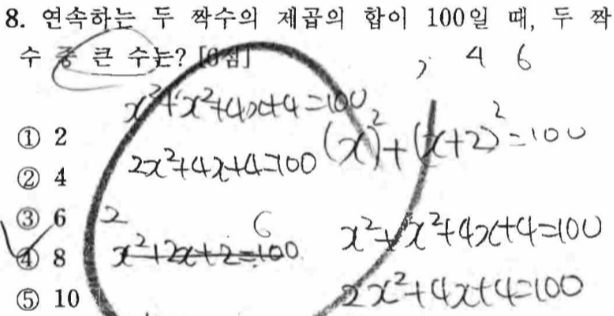 8. 연속하는 두 짝수의 제곱의 합이 100일 때, 두 짝
수 중 큰 수는? [6점]
, 4 6
x²+x²+4x+4=100
(x)²+(x+2)²=100
① 2
2x²+4x+4=100
② 4
③ 6
2 6
x²+2x+2=100
x²+x²+4x+4=100
④ 8
2x²+4x+4=100
⑤ 10